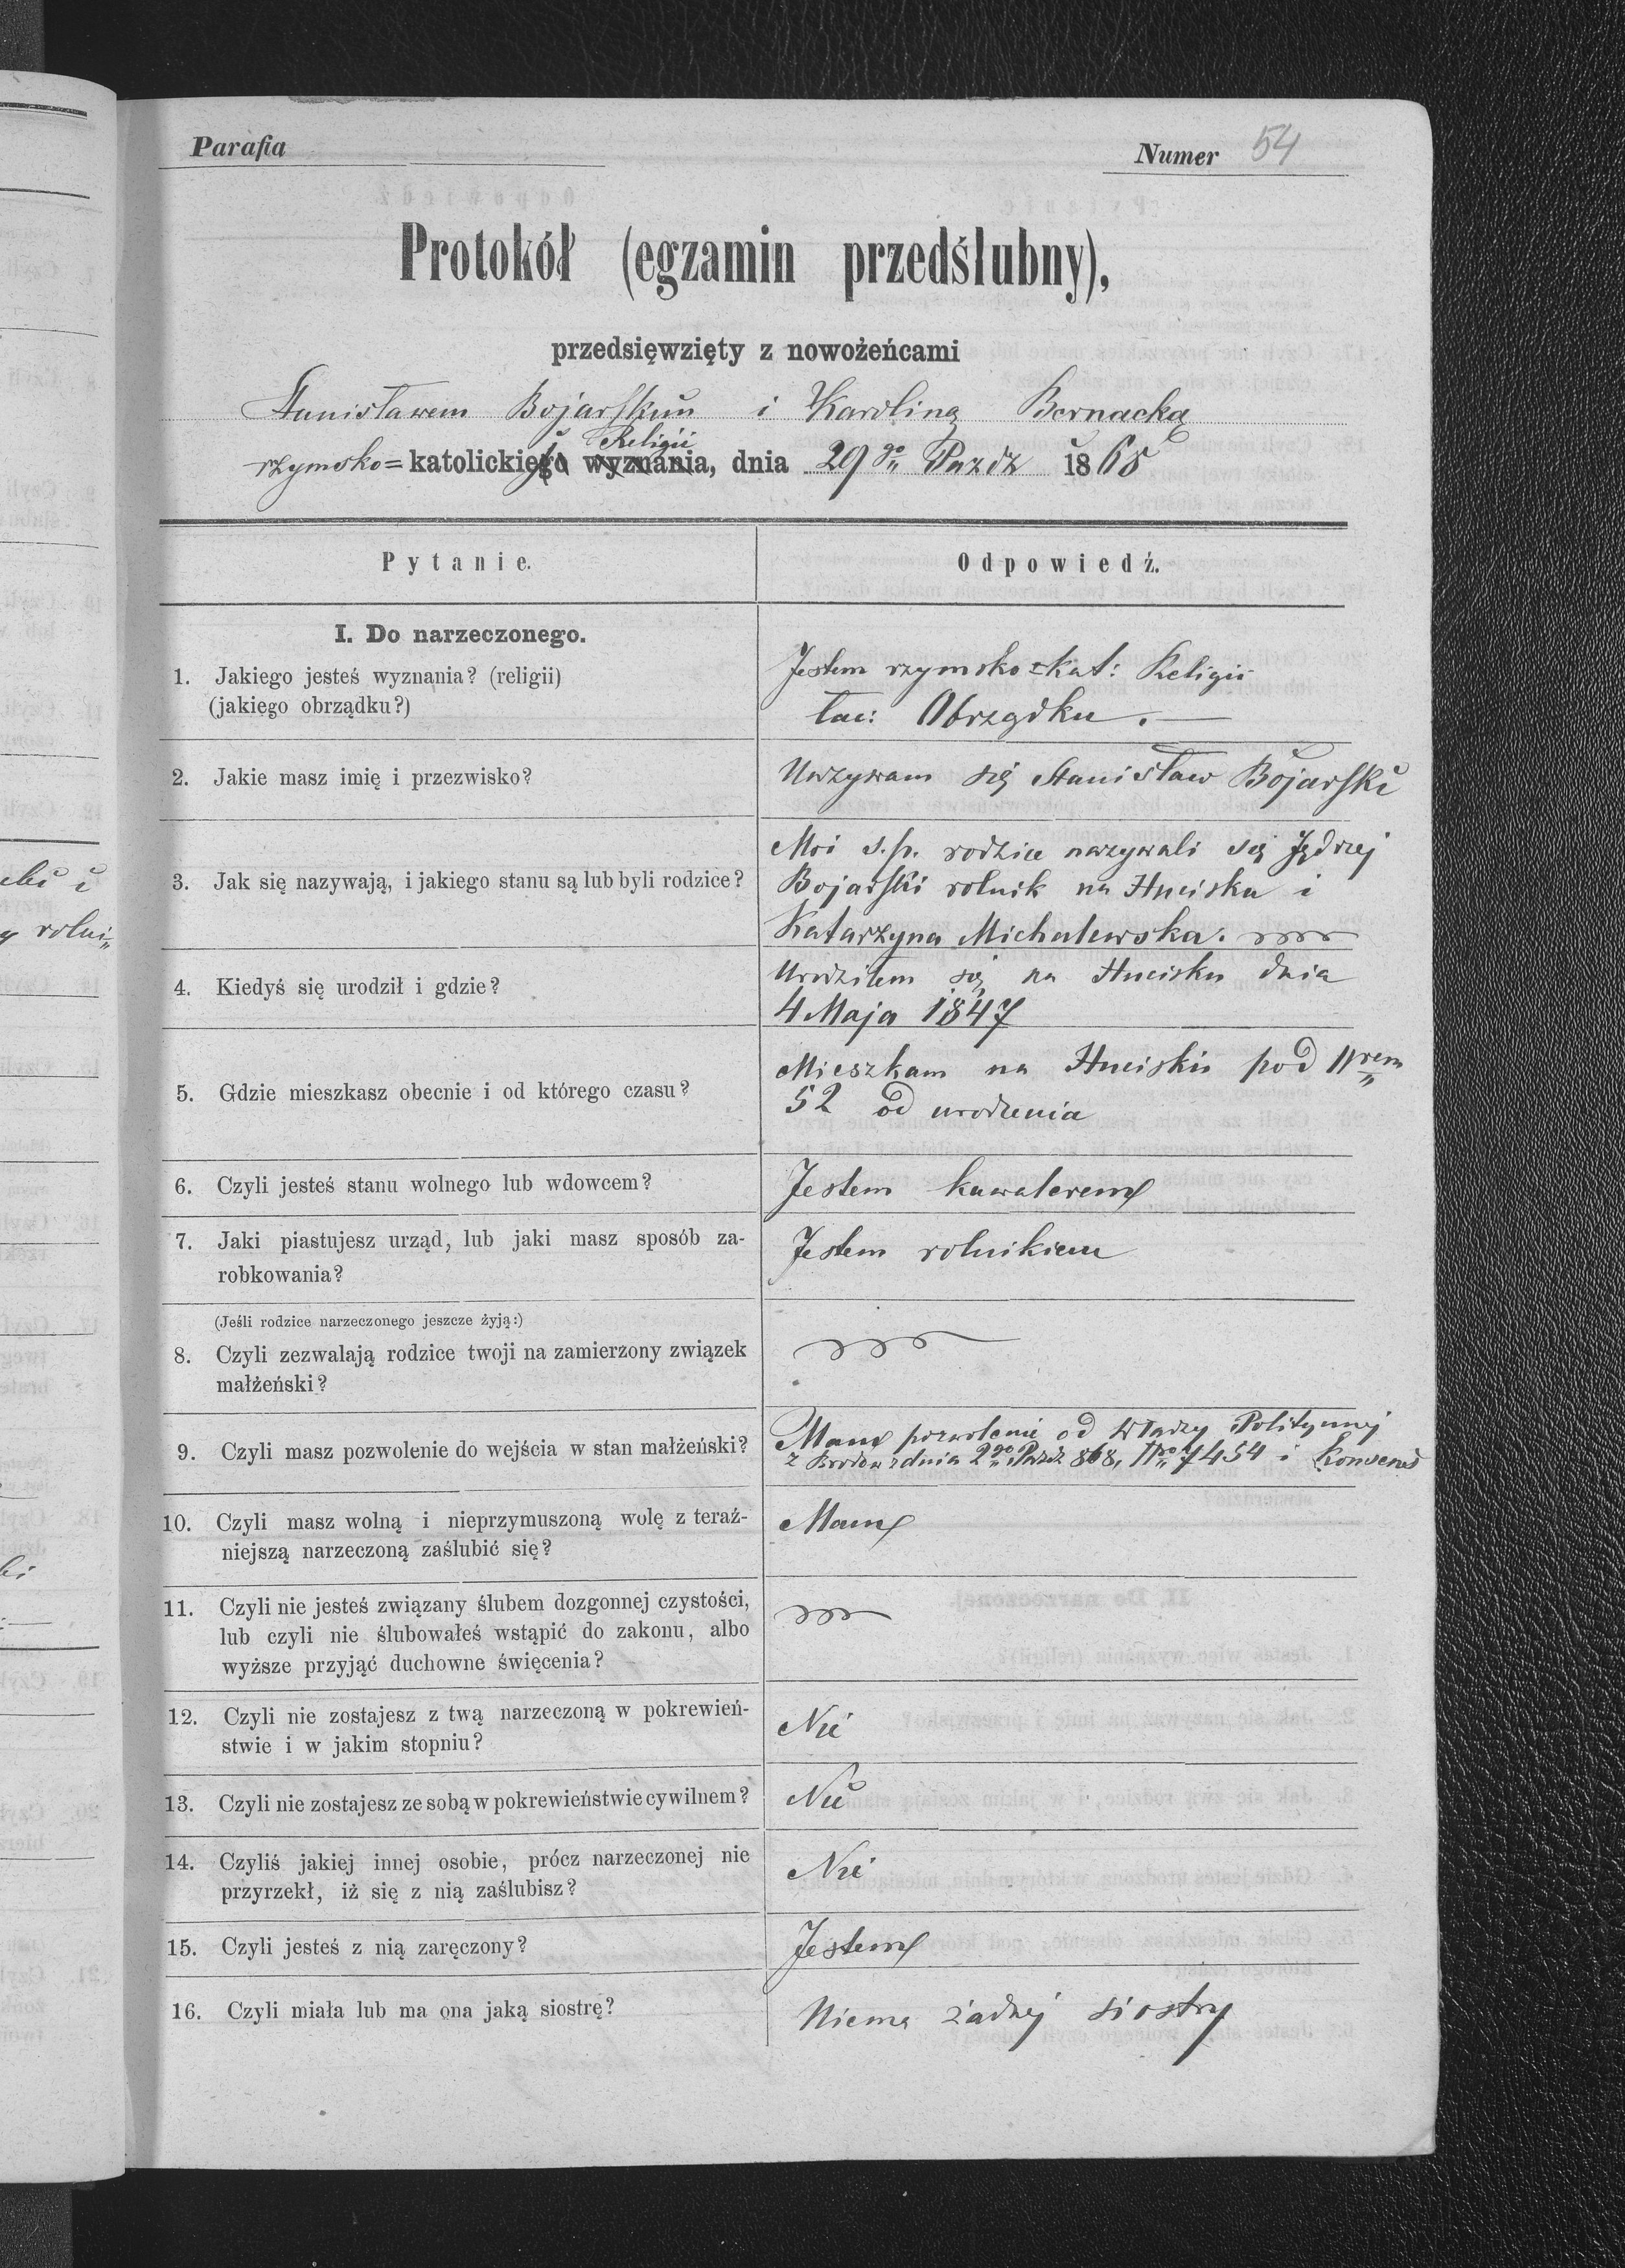 Parafia
Numer 54
Protokół (egzamin przedślubny),
przedsięwzięty z nowożeńcami
Stanisławem Bojarskim i Karoliną Bernacką
Religii
rzymsko= katolickiego wyznania, dnia 29go Paźdz 1868
Pytanie.
Odpowiedź.
I. Do narzeczonego.
1. Jakiego jesteś wyznania? (religii)
(jakiego obrządku?)
Jestem rzymsko=kat: Religii
łac: Obrządku.
2. Jakie masz imię i przezwisko?
Nazywam się Stanisław Bojarski
3. Jak się nazywają, i jakiego stanu są lub byli rodzice?
Moi ś.p. rodzice nazywali się Jędrzej
Bojarski rolnik na Hucisku i
Katarzyna Michalewska.
4. Kiedyś się urodził i gdzie?
Urodziłem się na Hucisku dnia
4 Maja 1847
5. Gdzie mieszkasz obecnie i od którego czasu?
Mieszkam na Hucisku pod Nrem
52 od urodzenia
6. Czyli jesteś stanu wolnego lub wdowcem?
Jestem kawalerem
7. Jaki piastujesz urząd, lub jaki masz sposób za-
robkowania?
Jestem rolnikiem
(Jeśli rodzice narzeczonego jeszcze żyją:)
8. Czyli zezwalają rodzice twoji na zamierzony związek
małżeński?
9. Czyli masz pozwolenie do wejścia w stan małżeński?
Mam pozwolenie od Władzy Politycznej
z Brodów dnia 2go Paźdz 868, Nro 7454 i Konsens
10. Czyli masz wolną i nieprzymuszoną wolę z teraź-
niejszą narzeczoną zaślubić się?
Mam
11. Czyli nie jesteś związany ślubem dozgonnej czystości,
lub czyli nie ślubowałeś wstąpić do zakonu, albo
wyższe przyjąć duchowne święcenia?
12. Czyli nie zostajesz z twą narzeczoną w pokrewień-
stwie i w jakim stopniu?
Nie
13. Czyli nie zostajesz ze sobą w pokrewieństwie cywilnem?
Nie
14. Czyliś jakiej innej osobie, prócz narzeczonej nie
przyrzekł, iż się z nią zaślubisz?
Nie
15. Czyli jesteś z nią zaręczony?
Jestem
16. Czyli miała lub ma ona jaką siostrę?
Niema żadnej siostry